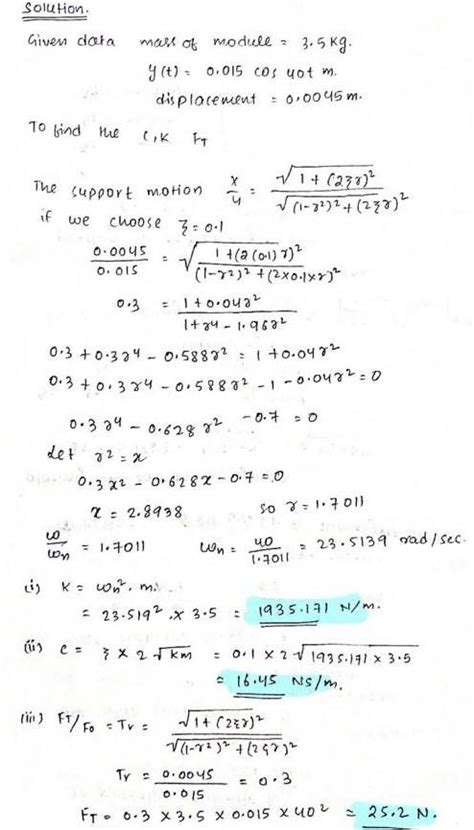 Solution.
Given data mass of module = 3.5 kg.
y(t) = 0.015 cos 40t m.
displacement = 0.0045 m.
To find the C, K F_T
The support motion x/y = √(1 + (2ξr)²) / √((1-r²)² + (2ξr)²)
if we choose ξ = 0.1
0.0045/0.015 = √(1 + (2(0.1)r)² / (1-r²)² + (2×0.1×r)²)
0.3 = 1 + 0.04r² / 1 + r4 - 1.96r²
0.3 + 0.3r4 - 0.588r² = 1 + 0.04r²
0.3 + 0.3r4 - 0.588r² - 1 - 0.04r² = 0
0.3r4 - 0.628r² - 0.7 = 0
Let r² = x
0.3x² - 0.628x - 0.7 = 0
x = 2.8938 so r = 1.7011
ω/ωn = 1.7011 ωn = 40/1.7011 = 23.5139 rad/sec.
(i) K = ωn². m.
= 23.519² × 3.5 = 1935.171 N/m.
(ii) C = ξ × 2√km = 0.1 × 2√1935.171 × 3.5
= 16.45 NS/m.
(iii) F_T/F_0 = Tr = √(1 + (2ξr)²) / √((1-r²)² + (2ξr)²)
Tr = 0.0045/0.015 = 0.3
F_T = 0.3 × 3.5 × 0.015 × 40² = 25.2 N.